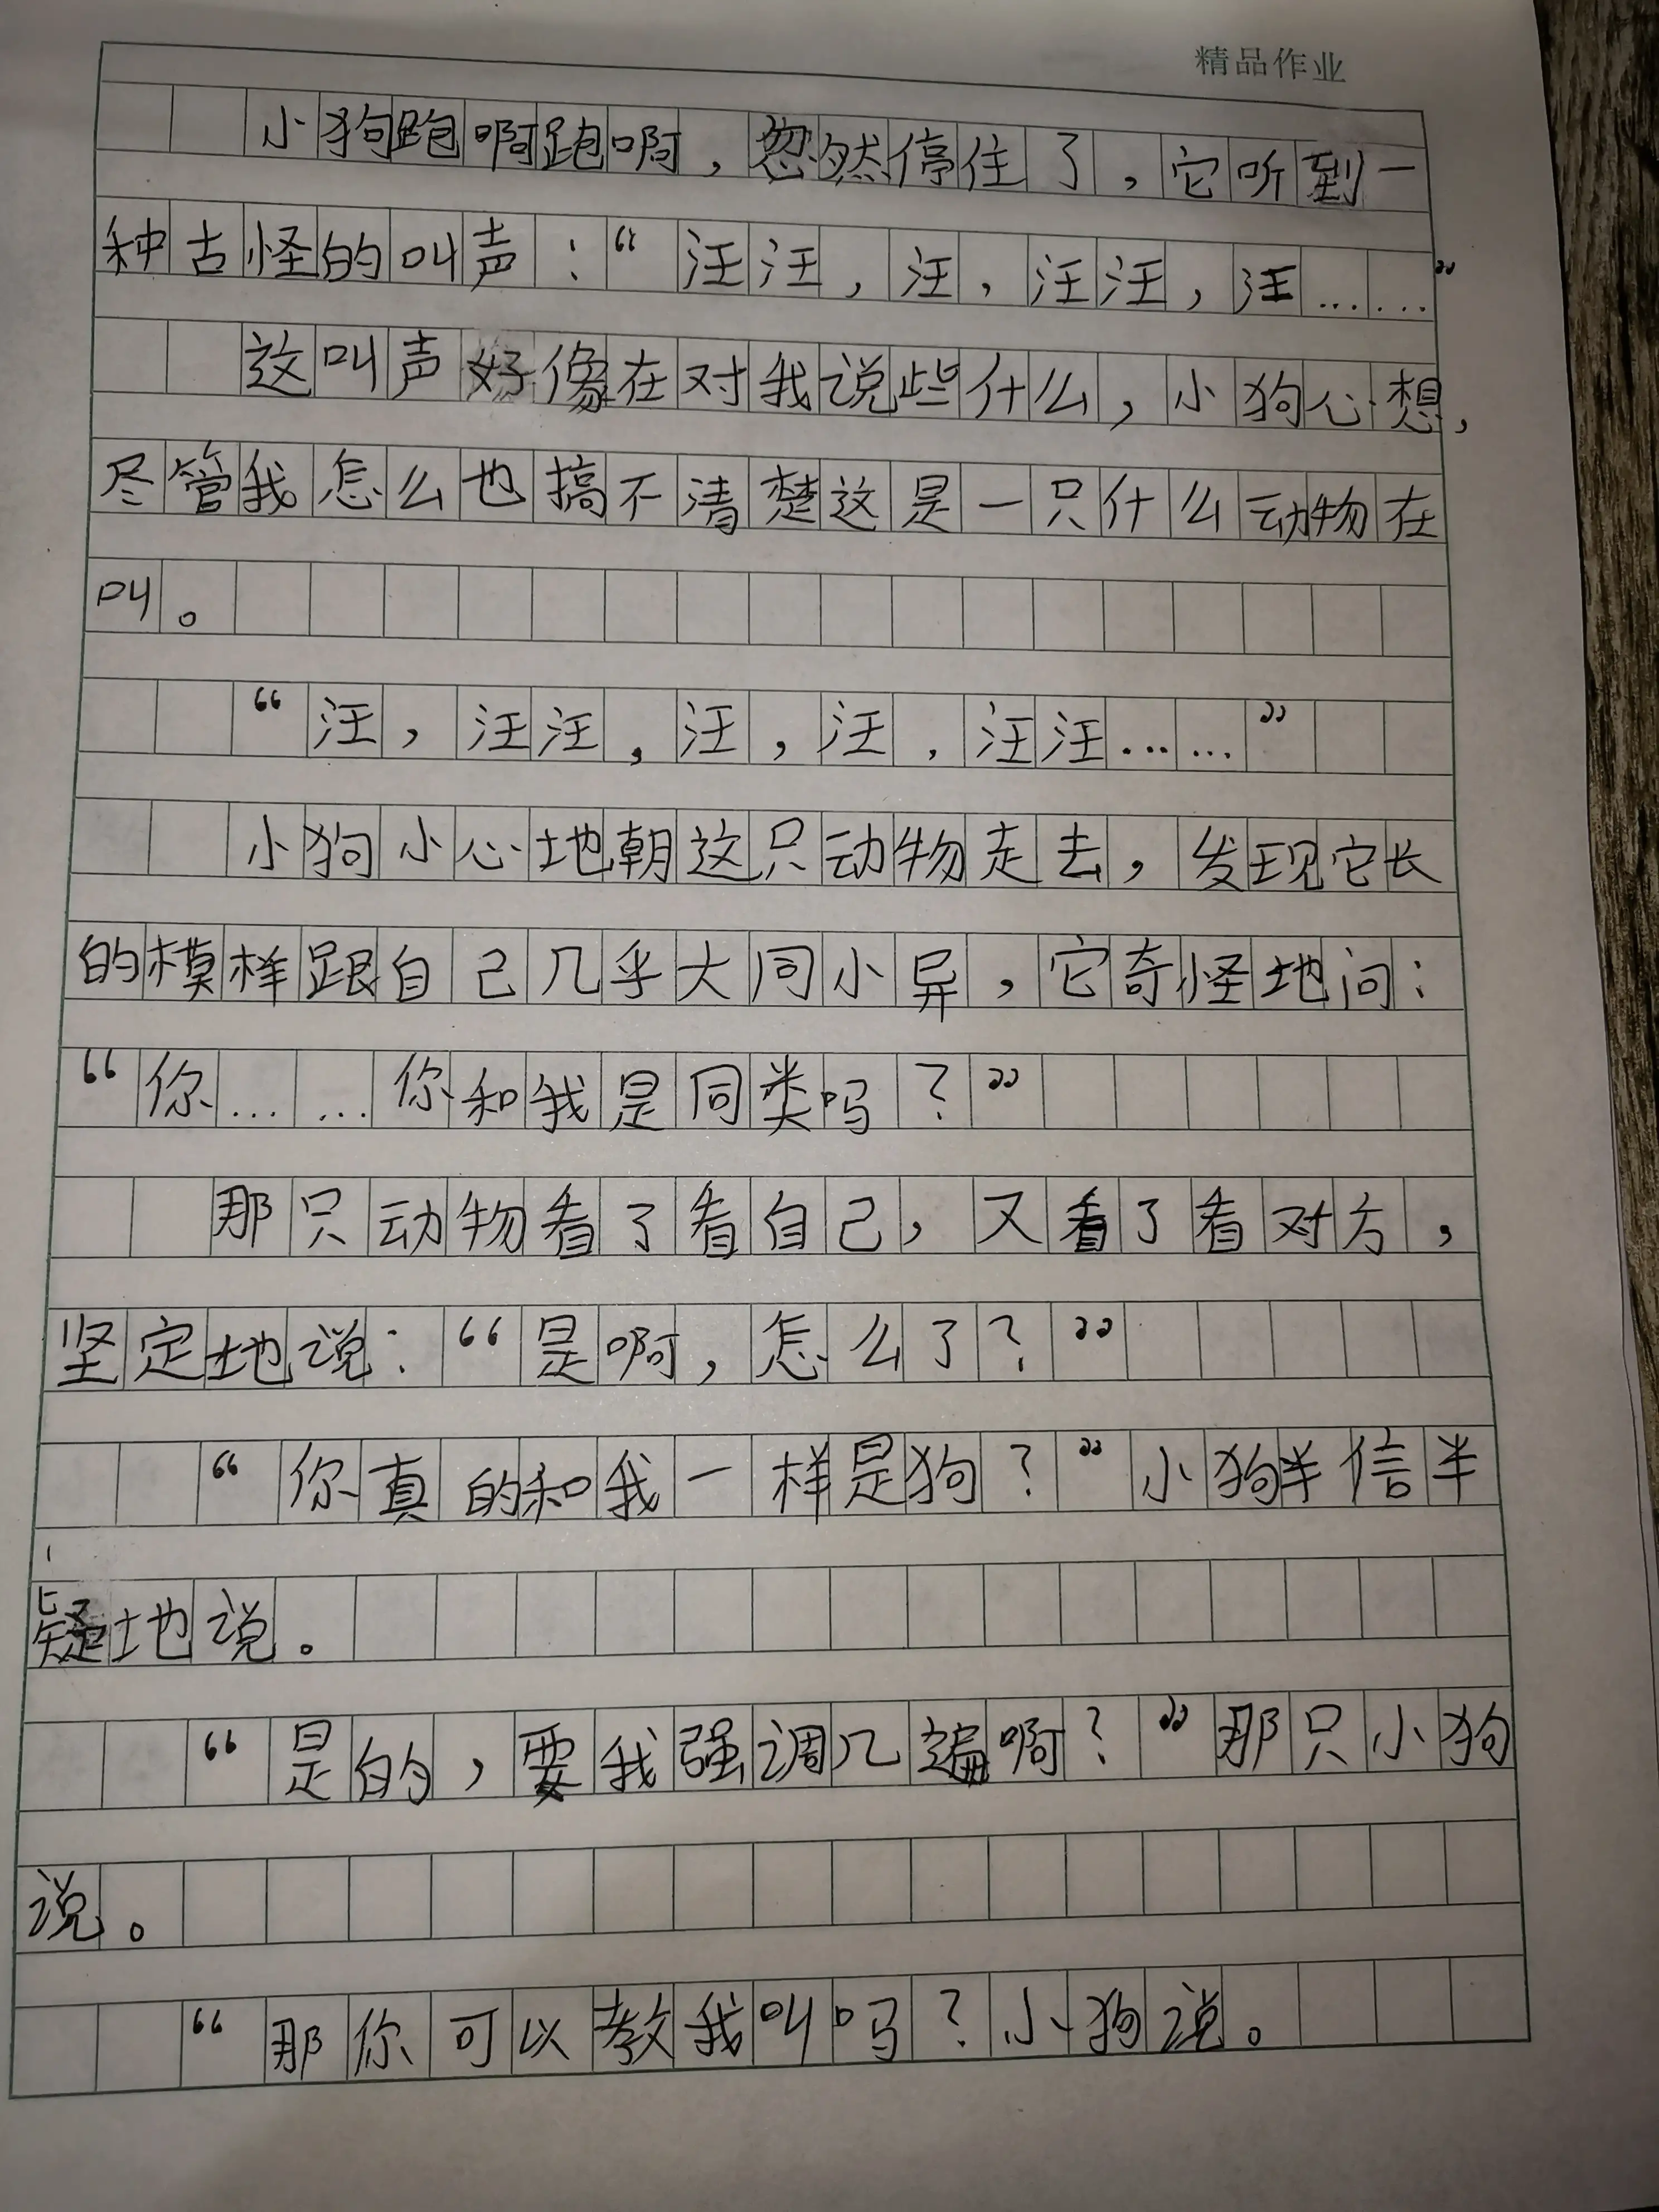 精品作业
小狗跑啊跑啊，忽然停住了，它听到一
种古怪的叫声：“汪汪，汪，汪汪，汪……”
这叫声好像在对我说些什么，小狗心想，
尽管我怎么也搞不清楚这是一只什么动物在
叫。
“汪，汪汪，汪，汪，汪汪……”
小狗小心地朝这只动物走去，发现它长
的模样跟自己几乎大同小异，它奇怪地问：
“你……你和我是同类吗？”
那只动物看了看自己，又看了看对方，
坚定地说：“是啊，怎么了？”
“你真的和我一样是狗？”小狗半信半
疑地说。
“是的，要我强调几遍啊？”那只小狗
说。
“那你可以教我叫吗？小狗说。